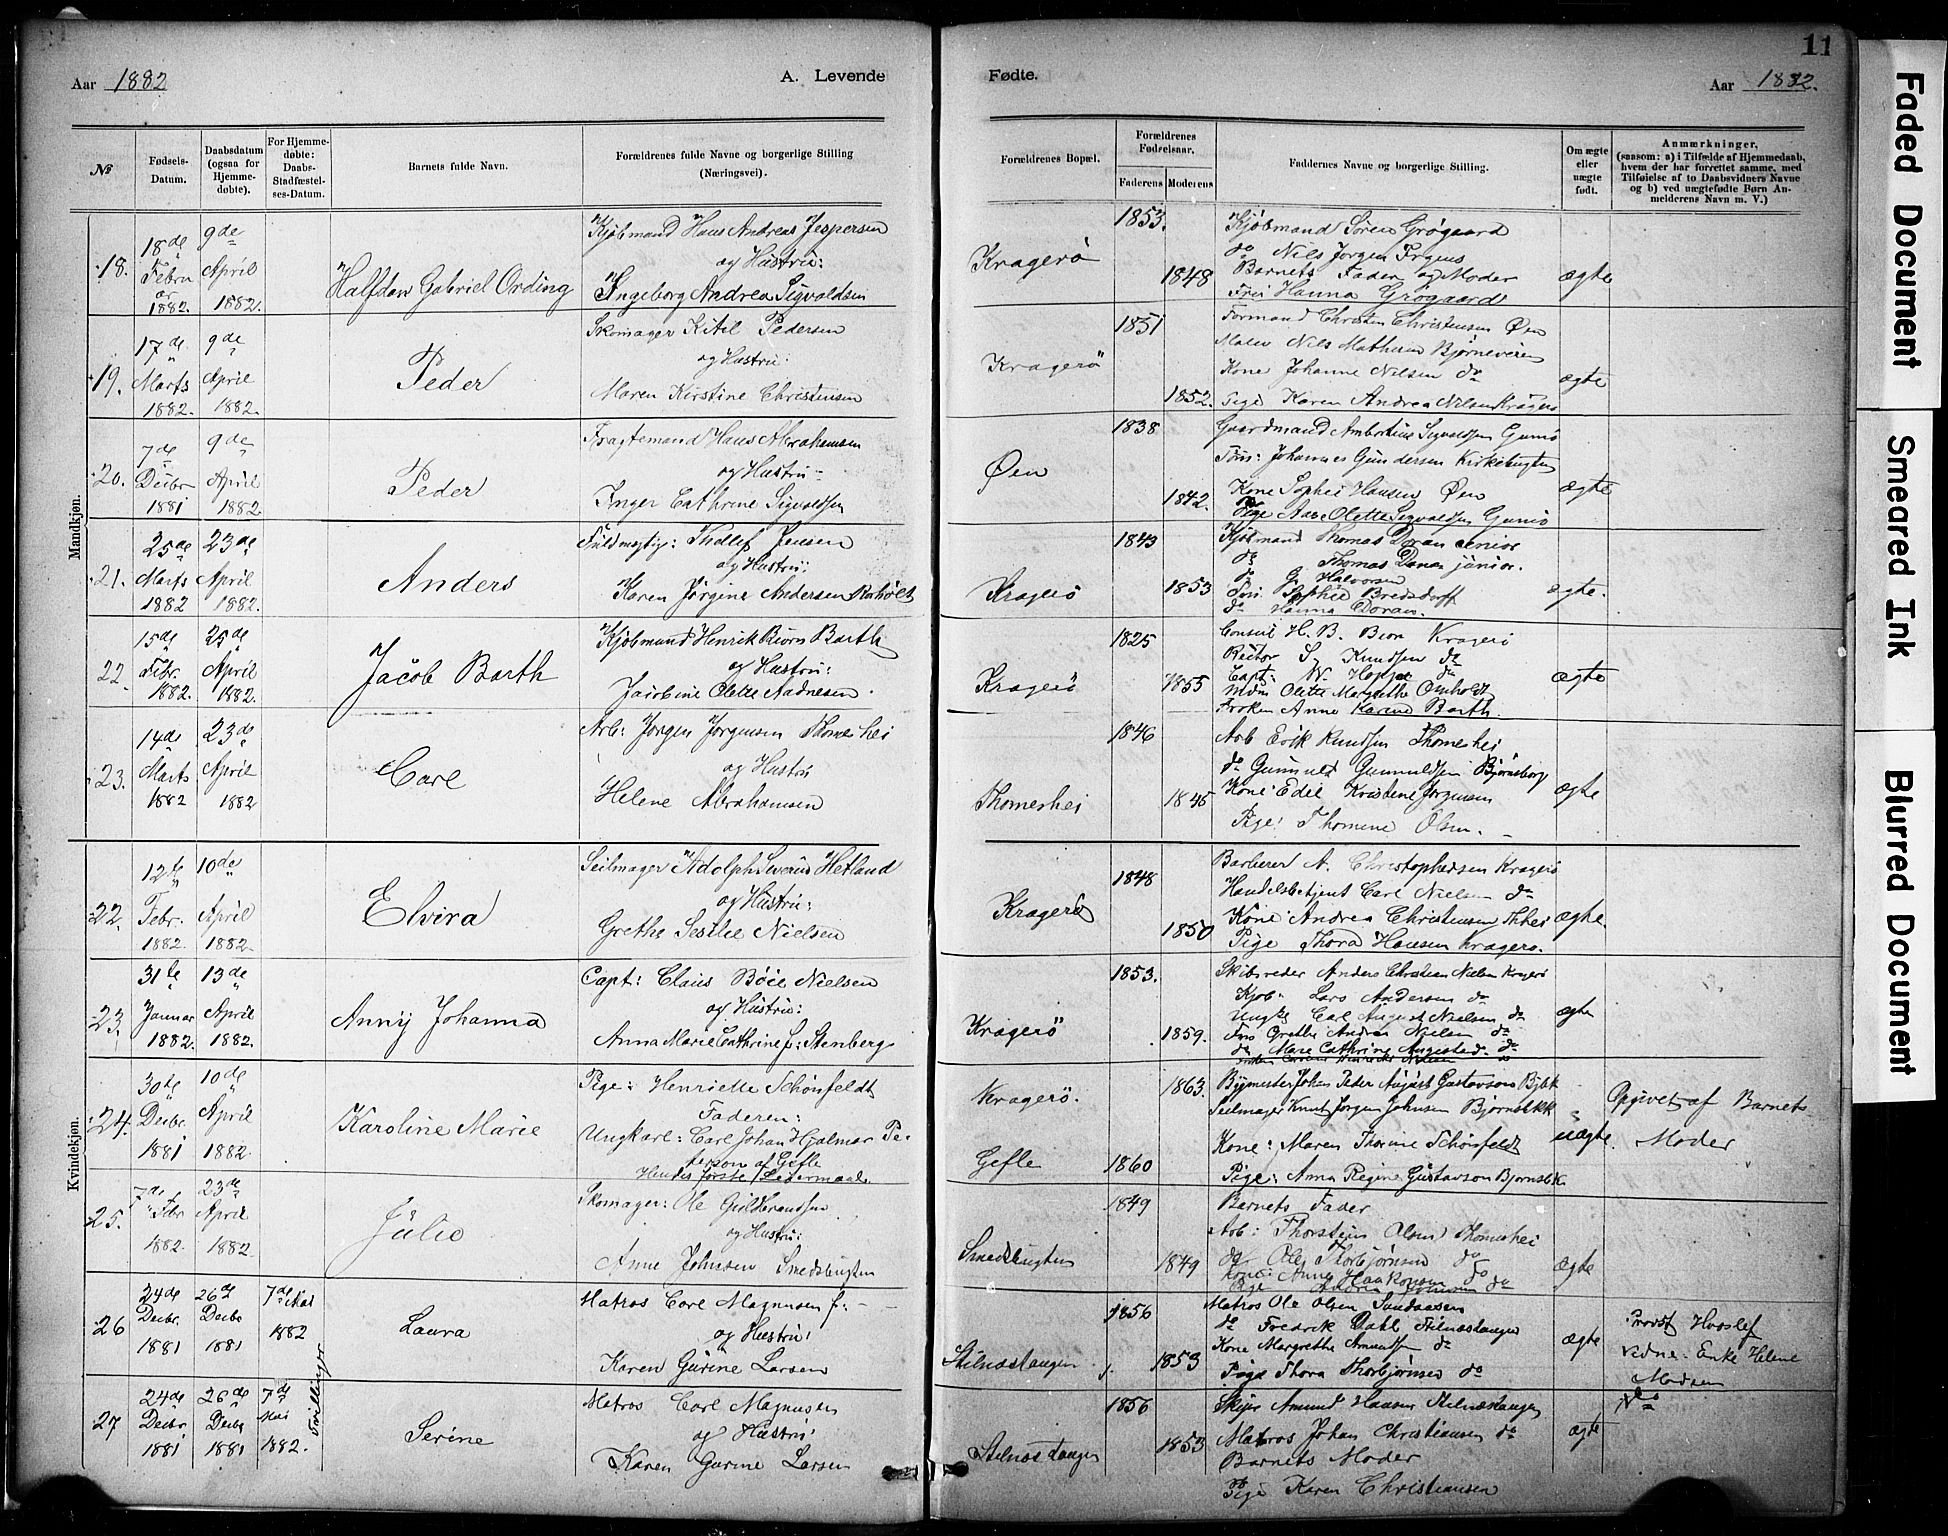 Aar 1882
A. Levende
Fødte.
Aar 1882.
11
№
Fødsels-Datum.
Daabsdatum (ogsaa for Hjemme-døbte).
For Hjemme-døbte: Daabs-Stadfæstel-ses-Datum.
Barnets fulde Navn.
Forældrenes fulde Navne og borgerlige Stilling (Næringsvei).
Forældrenes Bopæl.
Forældrenes Fødselsaar.
Faderens
Moderens
Faddernes Navne og borgerlige Stilling.
Om ægte eller uægte født.
Anmærkninger,
(saasom: a) i Tilfælde af Hjemmedaab,
hvem der har forrettet samme, med
Tilføielse af to Daabsvidners Navne
og b) ved uægtefødte Børn An-
melderens Navn m. V.)
Mandkjøn.
18. 18de Februar 1882. 9de April 1882. Halfdan Gabriel Ording
Kjøbmand Hans Andreas Jespersen
og Hustru:
Ingeborg Andrea Sigvaldsen
Kragerö 1853. 1848
Kjöbmand Sören Grögaard
do Nils Jörgen
Barnets Fader og Moder
Hanna Grögaard
ægte
19. 17de Marts 1882. 9de April 1882. Peder
Skomager Kitil Pedersen
og Hustru:
Maren Kirstine Christensen
Kragerö 1851 1852.
Formand Christen Christensen Øen
Nils Mathisen
Kone Johanne Nilsen do
Pige Karen Andrea Nilsen Kragerö
ægte
20. 7de Decbr 1881 9de April 1882 Peder
Fragtemand Hans Abrahamsen
og Hustru
Inger Cathrine Sigvaldsen
Øen 1838 1842.
Gaardmand Sigvaldsen Gumö
Johannes Gundersen Kirkebugten
Kone Hansen Øen
Pige Olette Sigvaldsen Gumö
ægte
21. 25de Marts 1882 23de April 1882. Anders
Fuldmægtig: Thellef Jensen
og Hustru:
Karen Jörgine Andersen
Kragerö 1843 1853
Kjöbmand Thomas Doran senior
do Thomas Doran júnior.
do G. Halvorsen
Sophie Bredsdorff
do Hanna Doran.
ægte.
22. 15de Febr. 1882. 25de April 1882. Jacob Barth
Kjöbmand Henrik Biörn Barth
og Hustru:
Jacobine Olette Aadnesen.
Kragerö 1825 1855
Consul H. B. Biørn Kragerö
Rector Knudsen do
Capt: do
Olette Margrethe Omholdt
Frøken Anne Karine Barth.
ægte
23. 14de Marts 1882 23de April 1882 Carl
Arb: Jörgen Jörgensen Thomeshei
og Hustru
Helene Abrahamsen
Thomeshei 1846 1845
Arb Erik Knudsen Thomeshei
do Gunnuld Gunnuldsen Björnsborg
Kone Edel Kristene Jörgensen
Pige: Thomine Olsen.
ægte
Kvindekjøn.
22. 12te Febr. 1882. 10de April 1882. Elvira
Seilmager Adolph Severin Hetland
og Hustru:
Grethe Sesilie Nielsen
Kragerö 1848 1850
Barberer A. Christophersen Kragerö
Handelsbetjent Carl Nielsen do
Kone Andrea Christensen
Pige Thora Hansen Kragerö.
ægte.
23. 31te Januar 1882. 13de April 1882. Anny Johanna
Capt: Claus Böie Nielsen
og Hustru:
Anna Marie Cathrine f: Stenberg
Kragerö 1853. 1859.
Skibsreder Anders Christian Nielsen Kragerö
Kjöb. Lars Andersen do
Ungk. Carl August Nielsen do
Grethe Andrea Nielsen do
do Cathrine do
ægte
24. 30te Decbr. 1881 10de April 1882. Karoline Marie
Pige: Henriette Schönfeldt
Faderen:
Ungkarl: Carl Johan Hjalmar Pe-
terson af Gefle
Hendes förste Leiermaal.
Kragerö. Gefle 1863. 1860
Johan Peder August Gustavson
Seilmager Knut Jorgen Johnsen
Kone: Maren Thorine Schönfeldt
Pige: Anna Regine Gustavson
uægte.
Opgivet af Barnets
Moder
25. 7de Febr 1882. 23de April 1882. Julie
Skomager: Ole Guldbrandsen
og Hustru:
Anne Johnsen Smedsbugten
Smedsbugten 1849 1849
Barnets Fader
Arb: Thorstein Olsen Thomeshei
do Ole Thorbjörnsen do
Kone: Anne Haakonsen do
ægte
26 24de Decbr. 1881 26de Decbr 1881 7de Mai 1882 Laura
Tvillinger
Matros Carl Magnusen
og Hustru:
Karen Gurine Larsen
Stilnæstangen 1856 1853
Matros Ole Olsen
do Fredrik Dahl Stilnæstangen
Kone Margrethe Amundsen do
Pige Thora Thorbjörnsen do
ægte
Provst Hvoslef
Enke Helene
Madsen
27 24de Decbr. 1881 26de Decbr 1881 7de Mai 1882. Serine
Matros Carl Magnusen
og Hustru:
Karen Gurine Larsen
Stilnæstangen 1856 1853
Amund Hansen Stilnæstangen
Matros Johan Christiansen do
Barnets Moder
Pige Karen Christiansen
ægte
do
Faded Document
Smeared Ink
Blurred Document